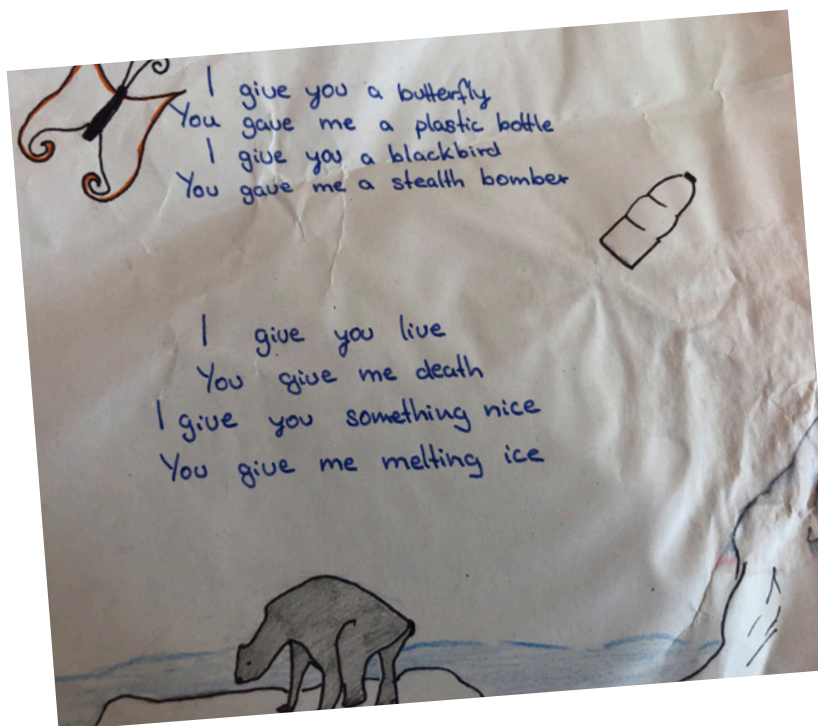 I give you a butterfly
You gave me a plastic bottle
I give you a blackbird
You gave me a stealth bomber
I give you live
You give me death
I give you something nice
You give me melting ice